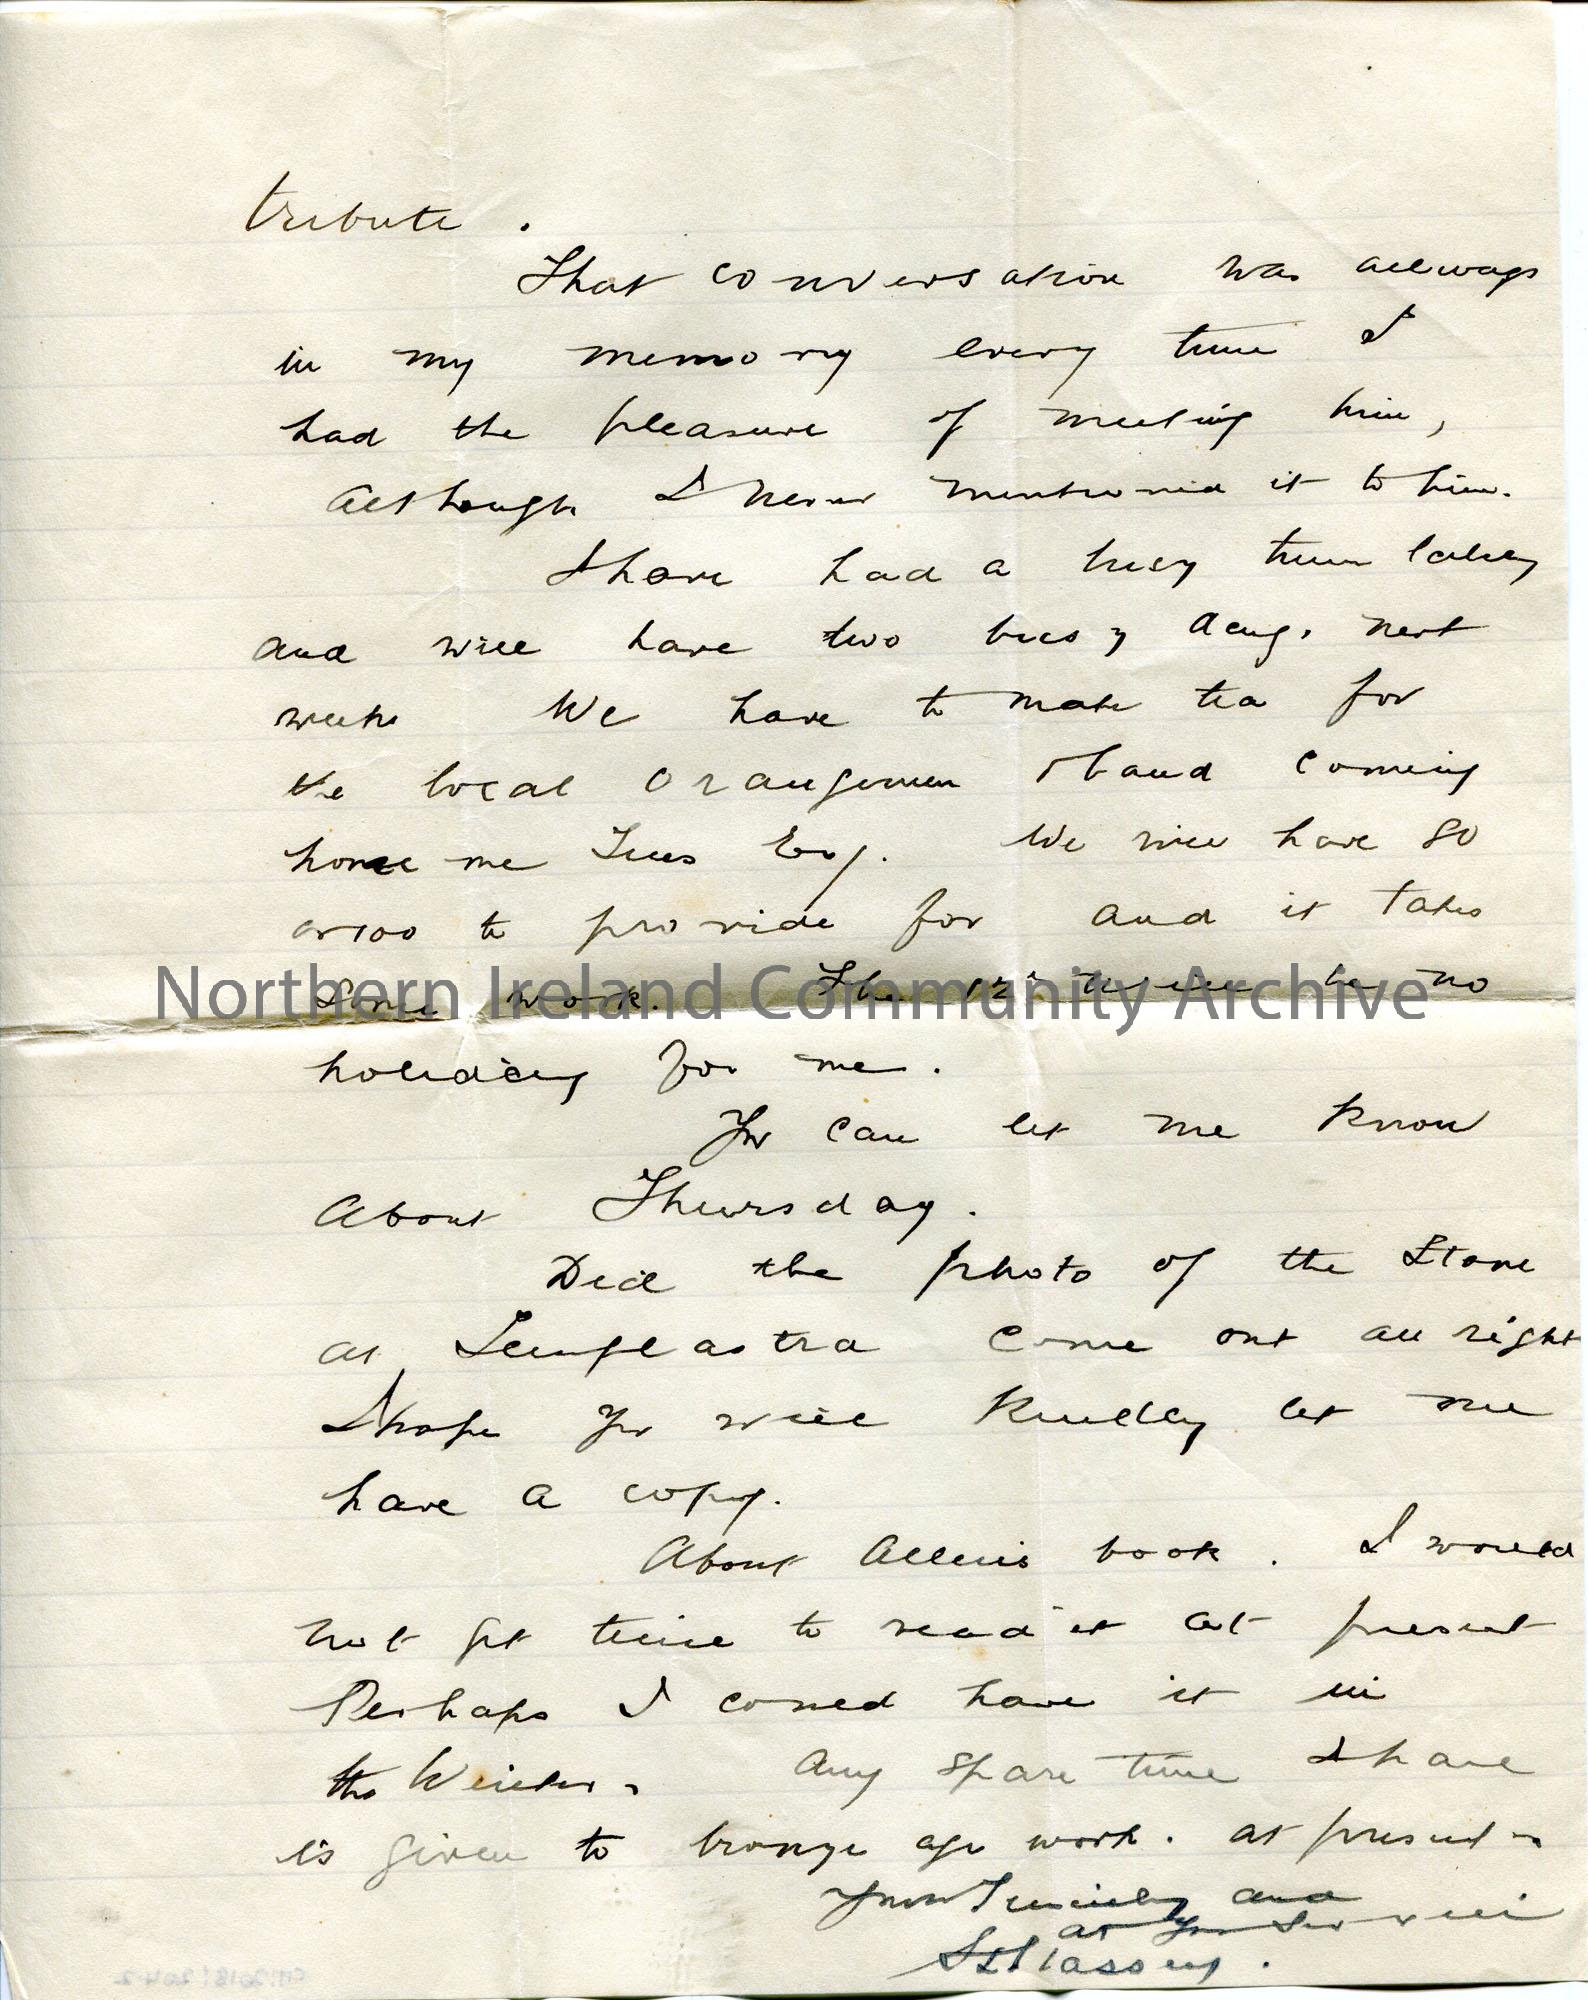 tribute.
That conversation was allways
in my memory every time I
had the pleasure of meeting him,
Although I never mentioned it to him.
I have had a busy time lately
and will have two busy days next
week We have to make tea for
the local Orangemen & band coming
home Tues Evg. We will have 80
or 100 to provide for and it takes
Some work. The 12th will be no
Northern Ireland Community Archive
holiday for me.
Yr can let me know
About Thursday.
Did the photo of the Stone
at come out all right
I hope yr will kindly let me
have a copy.
About Allens book. I would
not get time to read it at present
Perhaps I could have it in
the Winter. Any spare time I have
is given to bronze age work. at present.
Yours Sincerely and
at yr Service